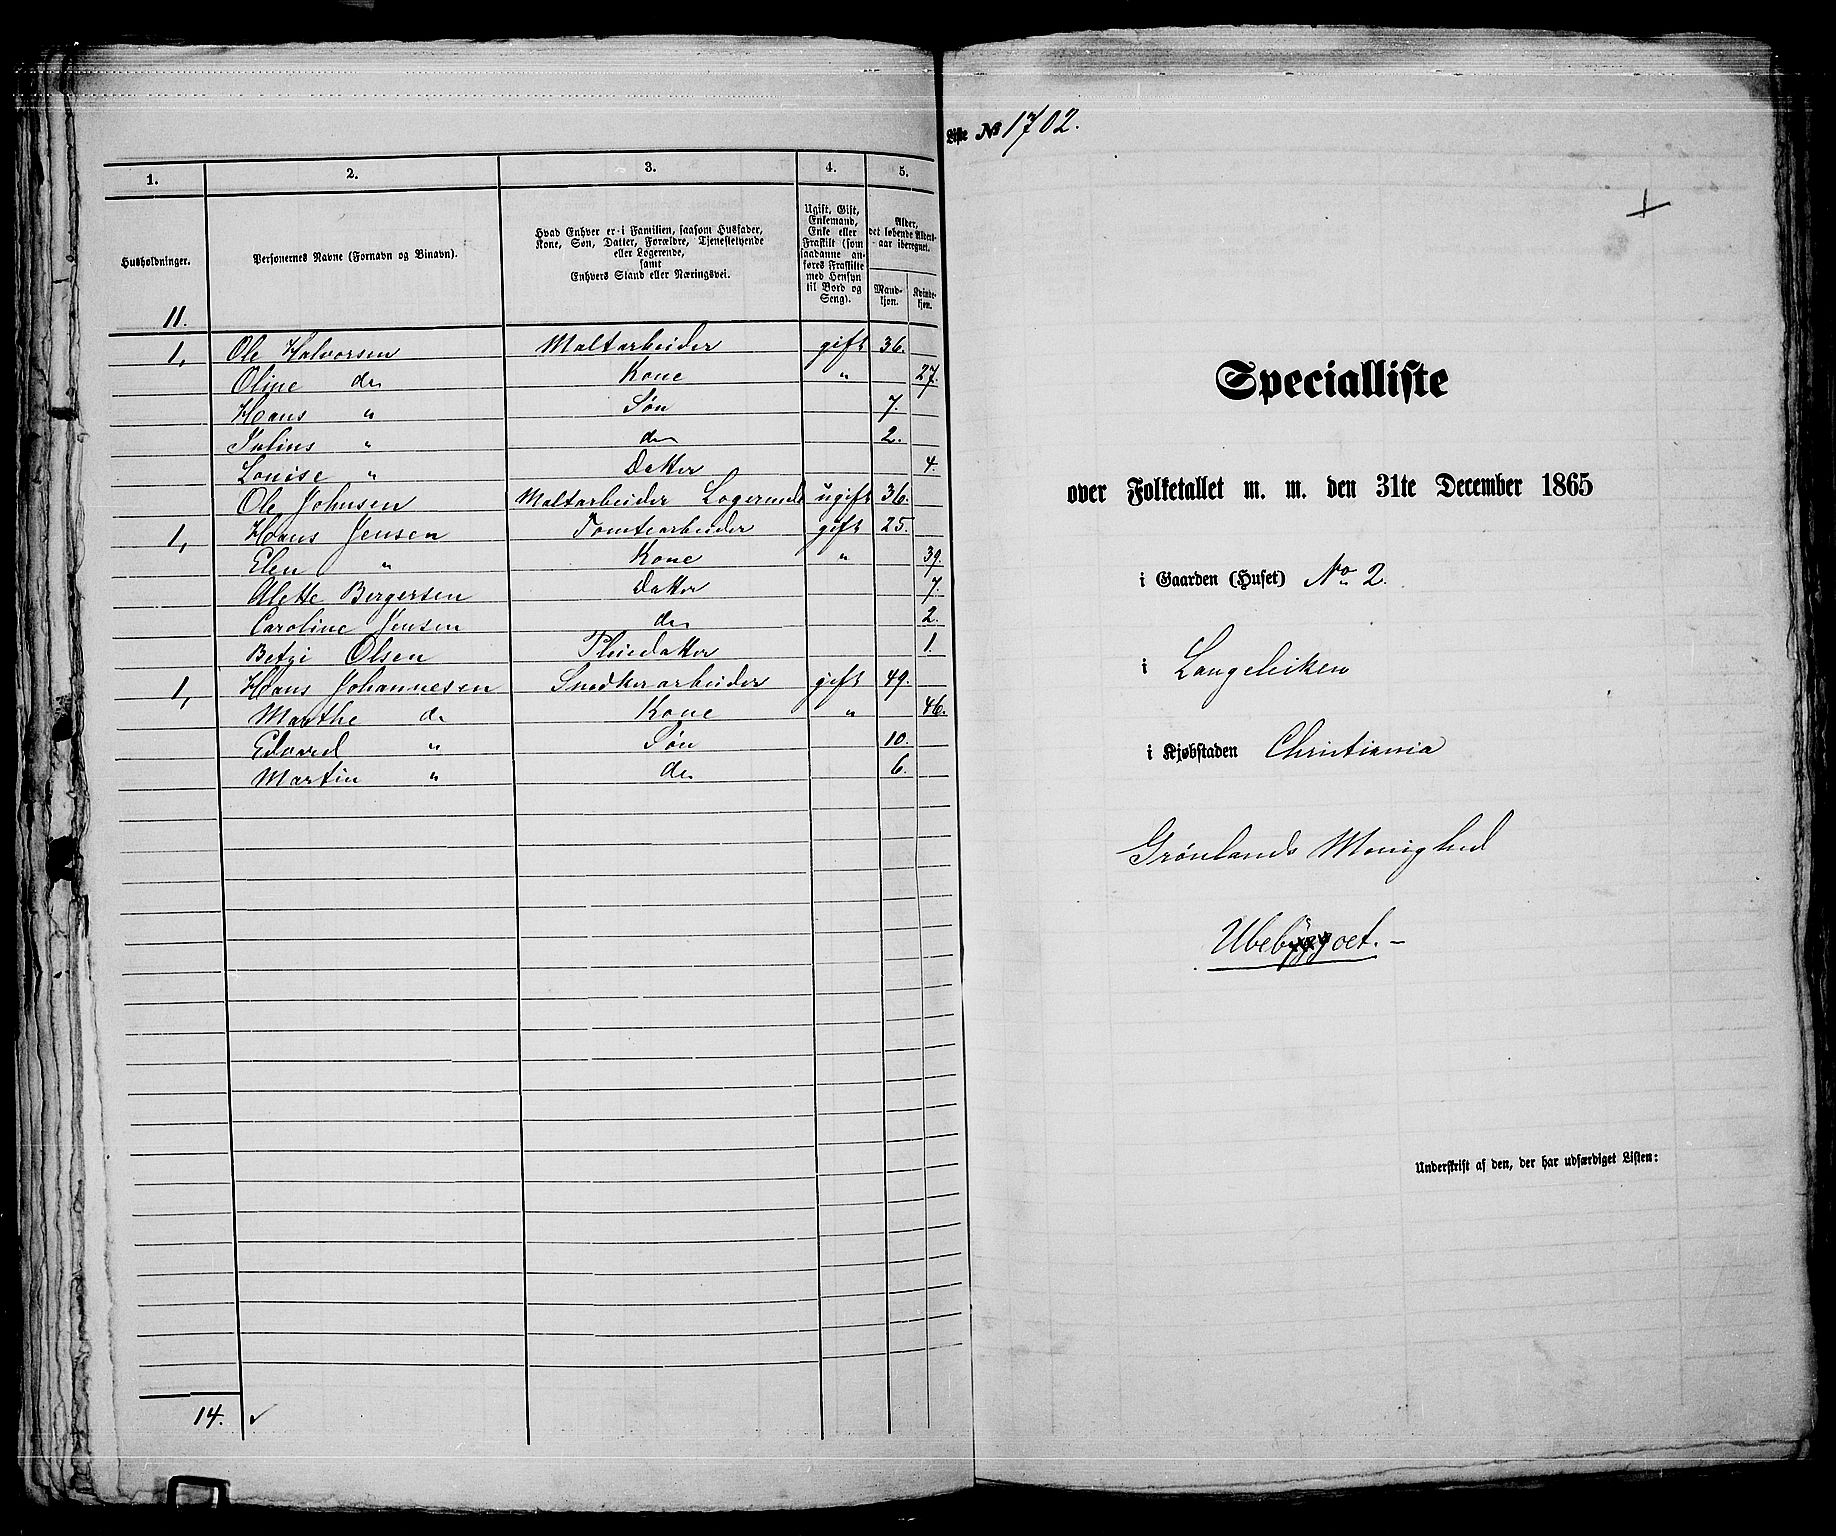 1. 2. 3. 4. 5.
Husholdninger.
Personernes Navne (Fornavn og Binavn).
Hvad Enhver er i Familien, saasom Husfader,
Kone, Søn, Datter, Forældre, Tjenestetyende
eller Logerende,
samt
Enhvers Stand eller Næringsvei.
Ugift, Gift,
Enkemand,
Enke eller
Fraskilt (som
saadanne an-
føres Fraskilte
med Hensyn
til Bord og
Seng).
Alder,
det løbende Alders-
aar iberegnet.
Mand-
kjøn.
Kvinde-
kjøn.
11.
1, Ole Halvorsen Maltarbeider gift 36.
Oline do Kone " 27.
Hans " Søn 7.
Julius " do 2.
Louise " Datter 4.
Ole Johnsen Maltarbeider Logerende ugift 36.
1, Hans Jensen Tomtearbeider gift 25.
Elen " Kone " 39.
Alette Bergersen Datter 7.
Caroline Jensen do 2.
Betzi Olsen Pleiedatter 1
1, Hans Johannesen Snedkerarbeider gift 49.
Marthe do Kone " 46.
Edvard " Søn 10.
Martin " do 6.
14. ✓
Liste № 1702.
Specialliste
over Folketallet m. m. den 31te December 1865
i Gaarden (Huset) No 2.
i Langeleiken
i Kjøbstaden Christiania
Grønlands Menighed
Ubeboet.
Underskrift af den, der har udfærdiget Listen: